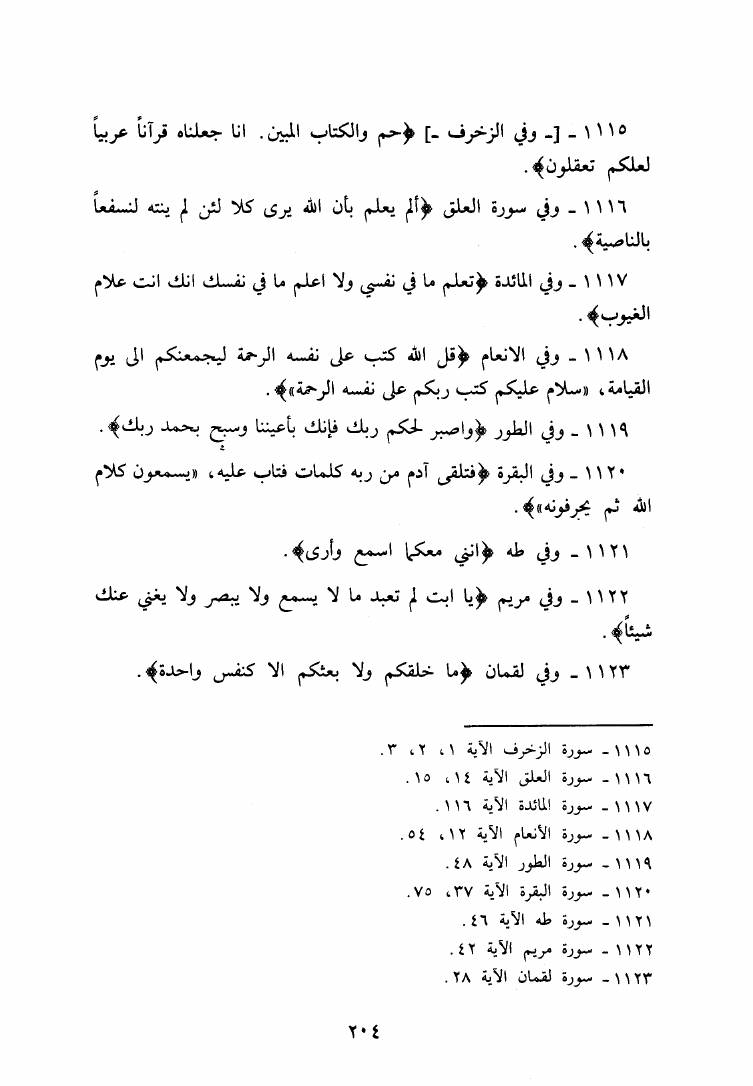 ١١١٥ - [ـ وفي الزخرف ـ] ﴿حم والكتاب المبين. انا جعلناه قرآناً عربياً
لعلكم تعقلون﴾.
١١١٦ - وفي سورة العلق ﴿ألم يعلم بأن الله يرى كلا لئن لم ينته لنسفعاً
بالناصية﴾.
١١١٧ - وفي المائدة ﴿تعلم ما في نفسي ولا اعلم ما في نفسك انك انت علام
الغيوب﴾.
١١١٨ - وفي الانعام ﴿قل الله كتب على نفسه الرحمة ليجمعنكم الى يوم
القيامة، «سلام عليكم كتب ربكم على نفسه الرحمة»﴾.
١١١٩ - وفي الطور ﴿واصبر لحكم ربك فإنك بأعيننا وسبح بحمد ربك﴾.
١١٢٠ - وفي البقرة ﴿فتلقى آدم من ربه كلمات فتاب عليه، «يسمعون كلام
الله ثم يحرفونه»﴾.
١١٢١ - وفي طه ﴿انني معكما اسمع وأرى﴾.
١١٢٢ - وفي مريم ﴿يا ابت لم تعبد ما لا يسمع ولا يبصر ولا يغني عنك
شيئاً﴾.
١١٢٣ - وفي لقمان ﴿ما خلقكم ولا بعثكم الا كنفس واحدة﴾.
١١١٥ - سورة الزخرف الآية ١، ٢، ٣.
١١١٦ - سورة العلق الآية ١٤، ١٥.
١١١٧ - سورة المائدة الآية ١١٦.
١١١٨ - سورة الأنعام الآية ١٢، ٥٤.
١١١٩ - سورة الطور الآية ٤٨.
١١٢٠ - سورة البقرة الآية ٣٧، ٧٥.
١١٢١ - سورة طه الآية ٤٦.
١١٢٢ - سورة مريم الآية ٤٢.
١١٢٣ - سورة لقمان الآية ٢٨.
٢٠٤